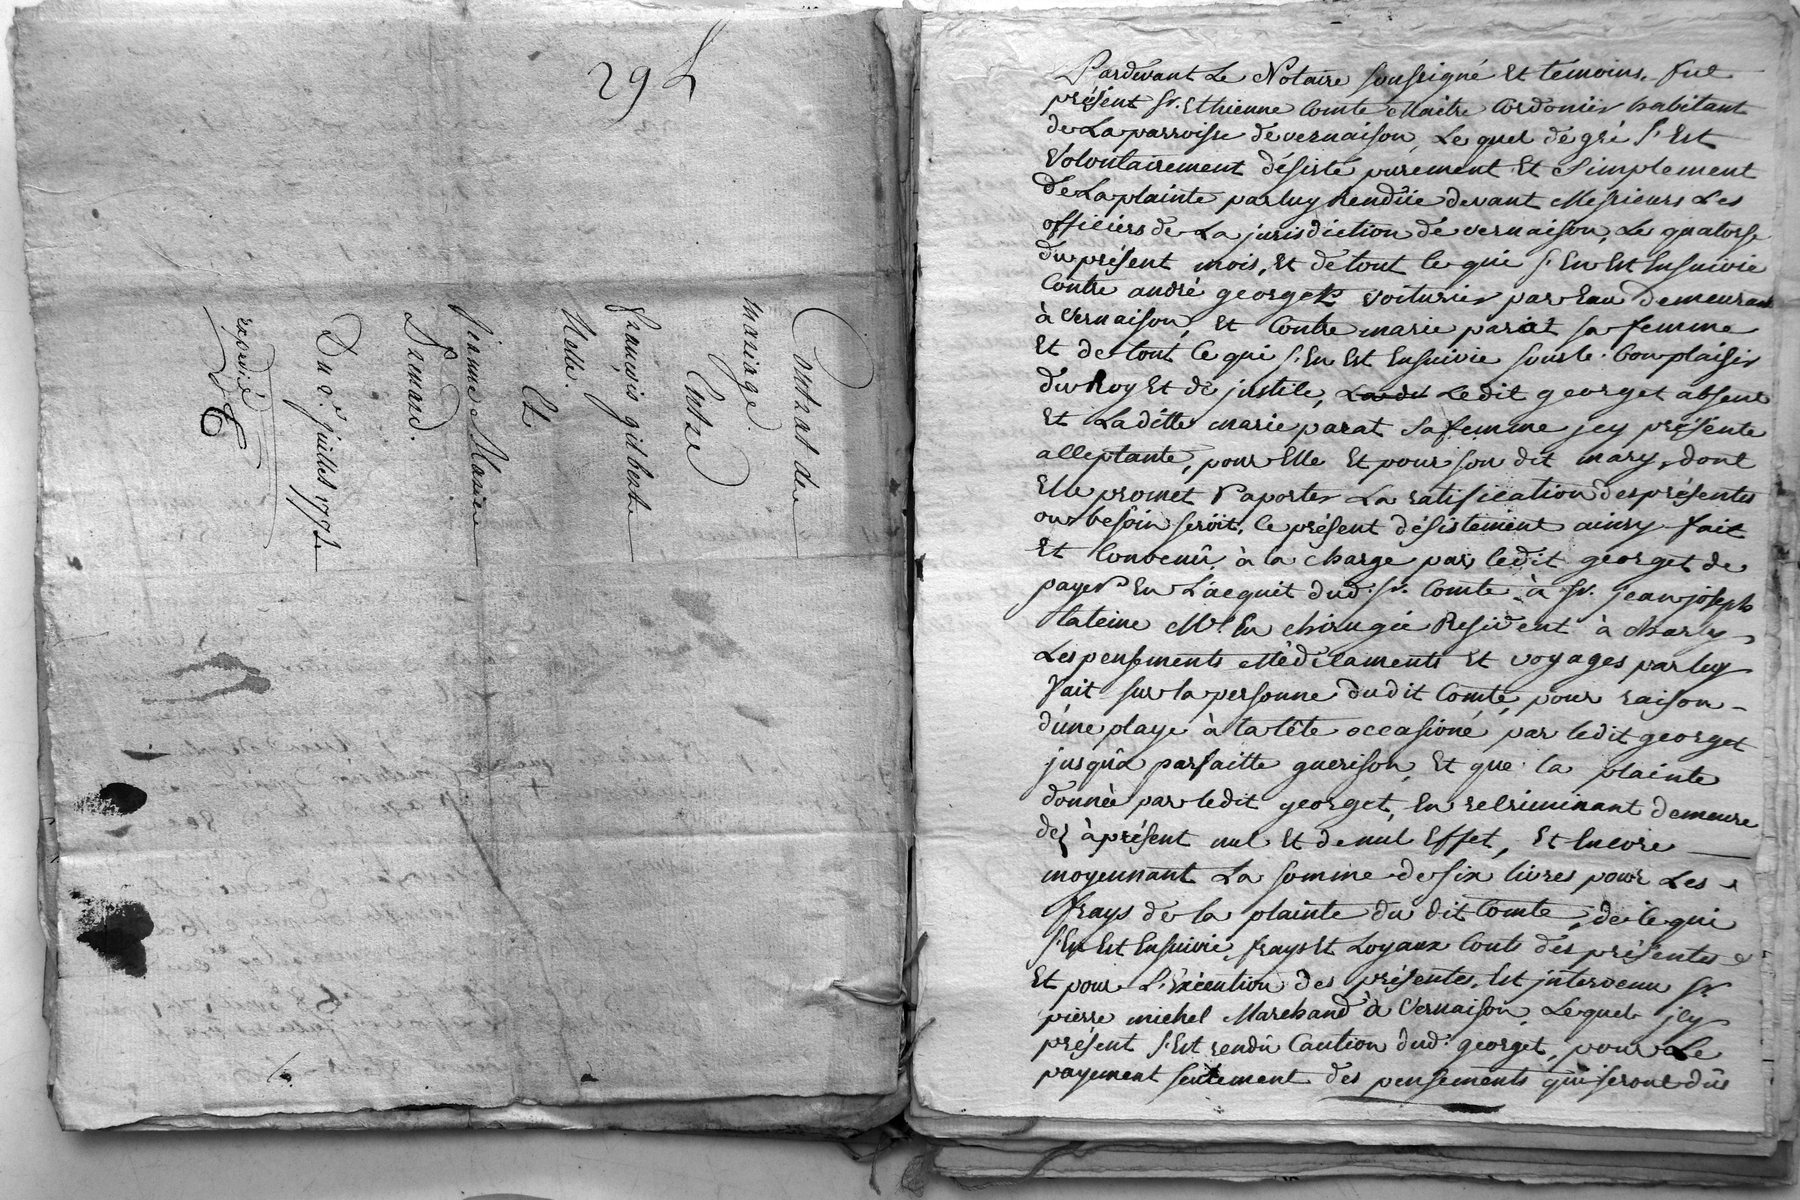 29 L
Contrat de
mariage.
Entre
François gilberte
Nelle.
Et
Jeanne Marie
Benard.
Du 2e. juillet 1772.
expedié
Pardevant Le Notaire soussigné Et témoins, fut
présent Sr. Ethienne Comte Maitre Cordonier habitant
de La parroisse de vernaison, Le quel de gré s'Est
Volontairement désisté purement Et Simplement
De La plainte par luy Rendüe devant Messieurs Les
officiers de La jurisdiction de vernaison, Le quatorse
du présent mois, Et de tout ce qui s'En Est Ensuivie
Contre andré georget voiturier par Eau Demeurant
à vernaison, Et Contre marie parat sa femme
Et de tout ce qui s'En Est Ensuivie sous le bon plaisir
du Roy Et de justice, Ledit georget absent
Et Laditte marie parat sa femme jcy présente
acceptante, pour Elle Et pour son dit mary, dont
Elle promet raporter La ratification des présentes
ou besoin seroit, le présent désistement ainsy fait
Et Convenû à la charge par ledit georget de
payer En L'acquit dud. Sr. Comte à Sr. jean joseph
Lateine Me. En chirugie Resident à charly
Les pensements Médicaments Et voyages par luy
fait sur la personne dudit Comte, pour raison
d'une playe à la tête occasioné par ledit georget
jusqu'à parfaitte guerison, Et que la plainte
donnée par ledit georget, En recriminant demeure
dez à présent nul Et de nul Effet, Et Encore
moyennant La somme de six livres pour Les
frays de la plainte du dit Comte, de ce qui
s'En Est Ensuivie, frays Et Loyaux Couts des présentes
Et pour L'Exécution des présentes, Est jntervenu Sr.
pierre michel Marchand à Vernaison, Lequel jcy
présent s'Est rendû Caution dud. georget, pour Le
payement seulement des pensements qui seront dûs